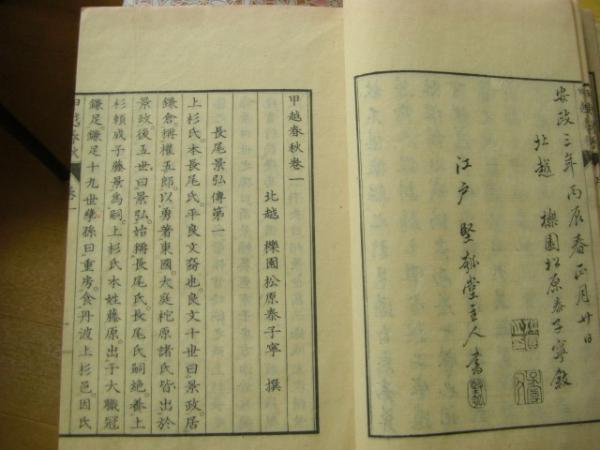 安政三年丙辰春正月廿日
北越 櫟園松原泰子寧敘
江戶 堅瓠堂主人書
甲越春秋卷一
北越 櫟園松原泰子寧 撰
長尾景弘傳第一
上杉氏本長尾氏。平良文裔也。良文十世曰景政。居
鎌倉。稱權五郎。以勇著東國。大庭梶原諸氏皆出於
景政。後五世曰景弘。始稱長尾氏。長尾氏嗣絕。養上
杉賴成子藤景為嗣。上杉氏本姓藤原。出于大職冠
鎌足。鎌足十九世孫曰重房。食丹波上杉邑。因氏
甲越春秋 卷一